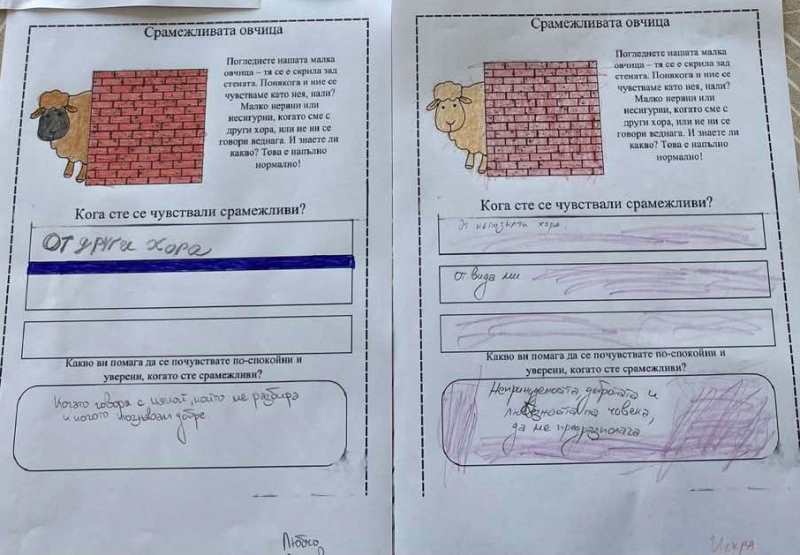 Срамежливата овчица
Погледнете нашата малка
овчица – тя се е скрила зад
стената. Понякога и ние се
чувстваме като нея, нали?
Малко нервни или
несигурни, когато сме с
други хора, или не ни се
говори веднага. И знаете ли
какво? Това е напълно
нормално!
Кога сте се чувствали срамежливи?
От други хора
Какво ви помага да се почувствате по-спокойни и
уверени, когато сте срамежливи?
Когато говоря с някой, който ме разбира
и когото познавам добре
Срамежливата овчица
Погледнете нашата малка
овчица – тя се е скрила зад
стената. Понякога и ние се
чувстваме като нея, нали?
Малко нервни или
несигурни, когато сме с
други хора, или не ни се
говори веднага. И знаете ли
какво? Това е напълно
нормално!
Кога сте се чувствали срамежливи?
От непознати хора.
От вида ми
Какво ви помага да се почувствате по-спокойни и
уверени, когато сте срамежливи?
Непринудеността, добротата и
любезността на човека,
да ме предразполага
Искра